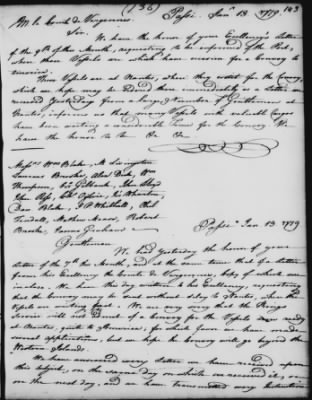 (136)
143
Passi. Jany. 13. 1779
M. le Comte de Vergennes.
Sir.
We have the honor of your Excellency's Letter
of the 9th of this Month, requesting to be informed of the Port,
where those Vessels are which have waited for a Convoy to
America.
Those Vessels are at Nantes, where they waited for the Convoy,
which we hope may be ordered there immediately as a Letter we
received Yesterday from a large Number of Gentlemen at
Nantes, informs us that many Vessels with valuable Cargos
have been waiting a considerable Time for the Convoy. We
have the honor to be &c &c
Messrs. Wm Blake, M Livingston
Laurens Brooke, Alexr. Dick, Wm
Thompson, Js. Gilbank, John Lloyd
John Ross, Js. Wharton,
Danl Blake, J P Whithall, Chst
Trudall, Mathew Mease, Robert
Brooke, James
Passi Jan 13. 1779
Gentlemen
We had Yesterday the honor of your
Letter of the 7th this Month, and at the same time that of a Letter
from his Excellency the Comte de Vergennes, copy of which we
inclose. We have this day written to his Excellency, requesting
that the Convoy may be sent without delay to Nantes, where the
Vessels are waiting for it. We are very sorry that the Kings
Service will not admit of a Convoy for the Vessels now ready
at Nantes, quite to America, for which favor we have made
several applications, but we hope the Convoy will go beyond the
Western Islands.
We have answered every Letter we have received upon
this subject, on the same day on which we received it, or
on the next day, and we have transmitted every